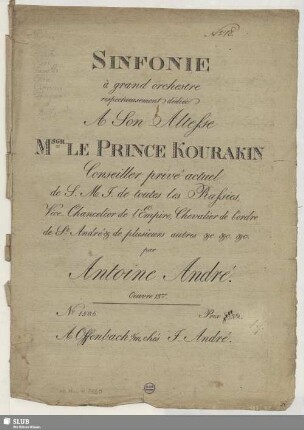 SINFONIE
à grand orchestre
respectueusement dediée
A Son Altesse
Msgr. LE PRINCE KOURAKIN
Conseiller privé actuel
de S. M. I. de toutes les Russies,
Vice-Chancelier de l'Empire, Chevalier de l'ordre
de St. André & de plusieurs autres &c. &c. &c.
par
Antoine André.
Oeuvre 25me.
No 1806. Prix
A Offenbach s/m, chés J. André.
SLUB
Wir führen Wissen.